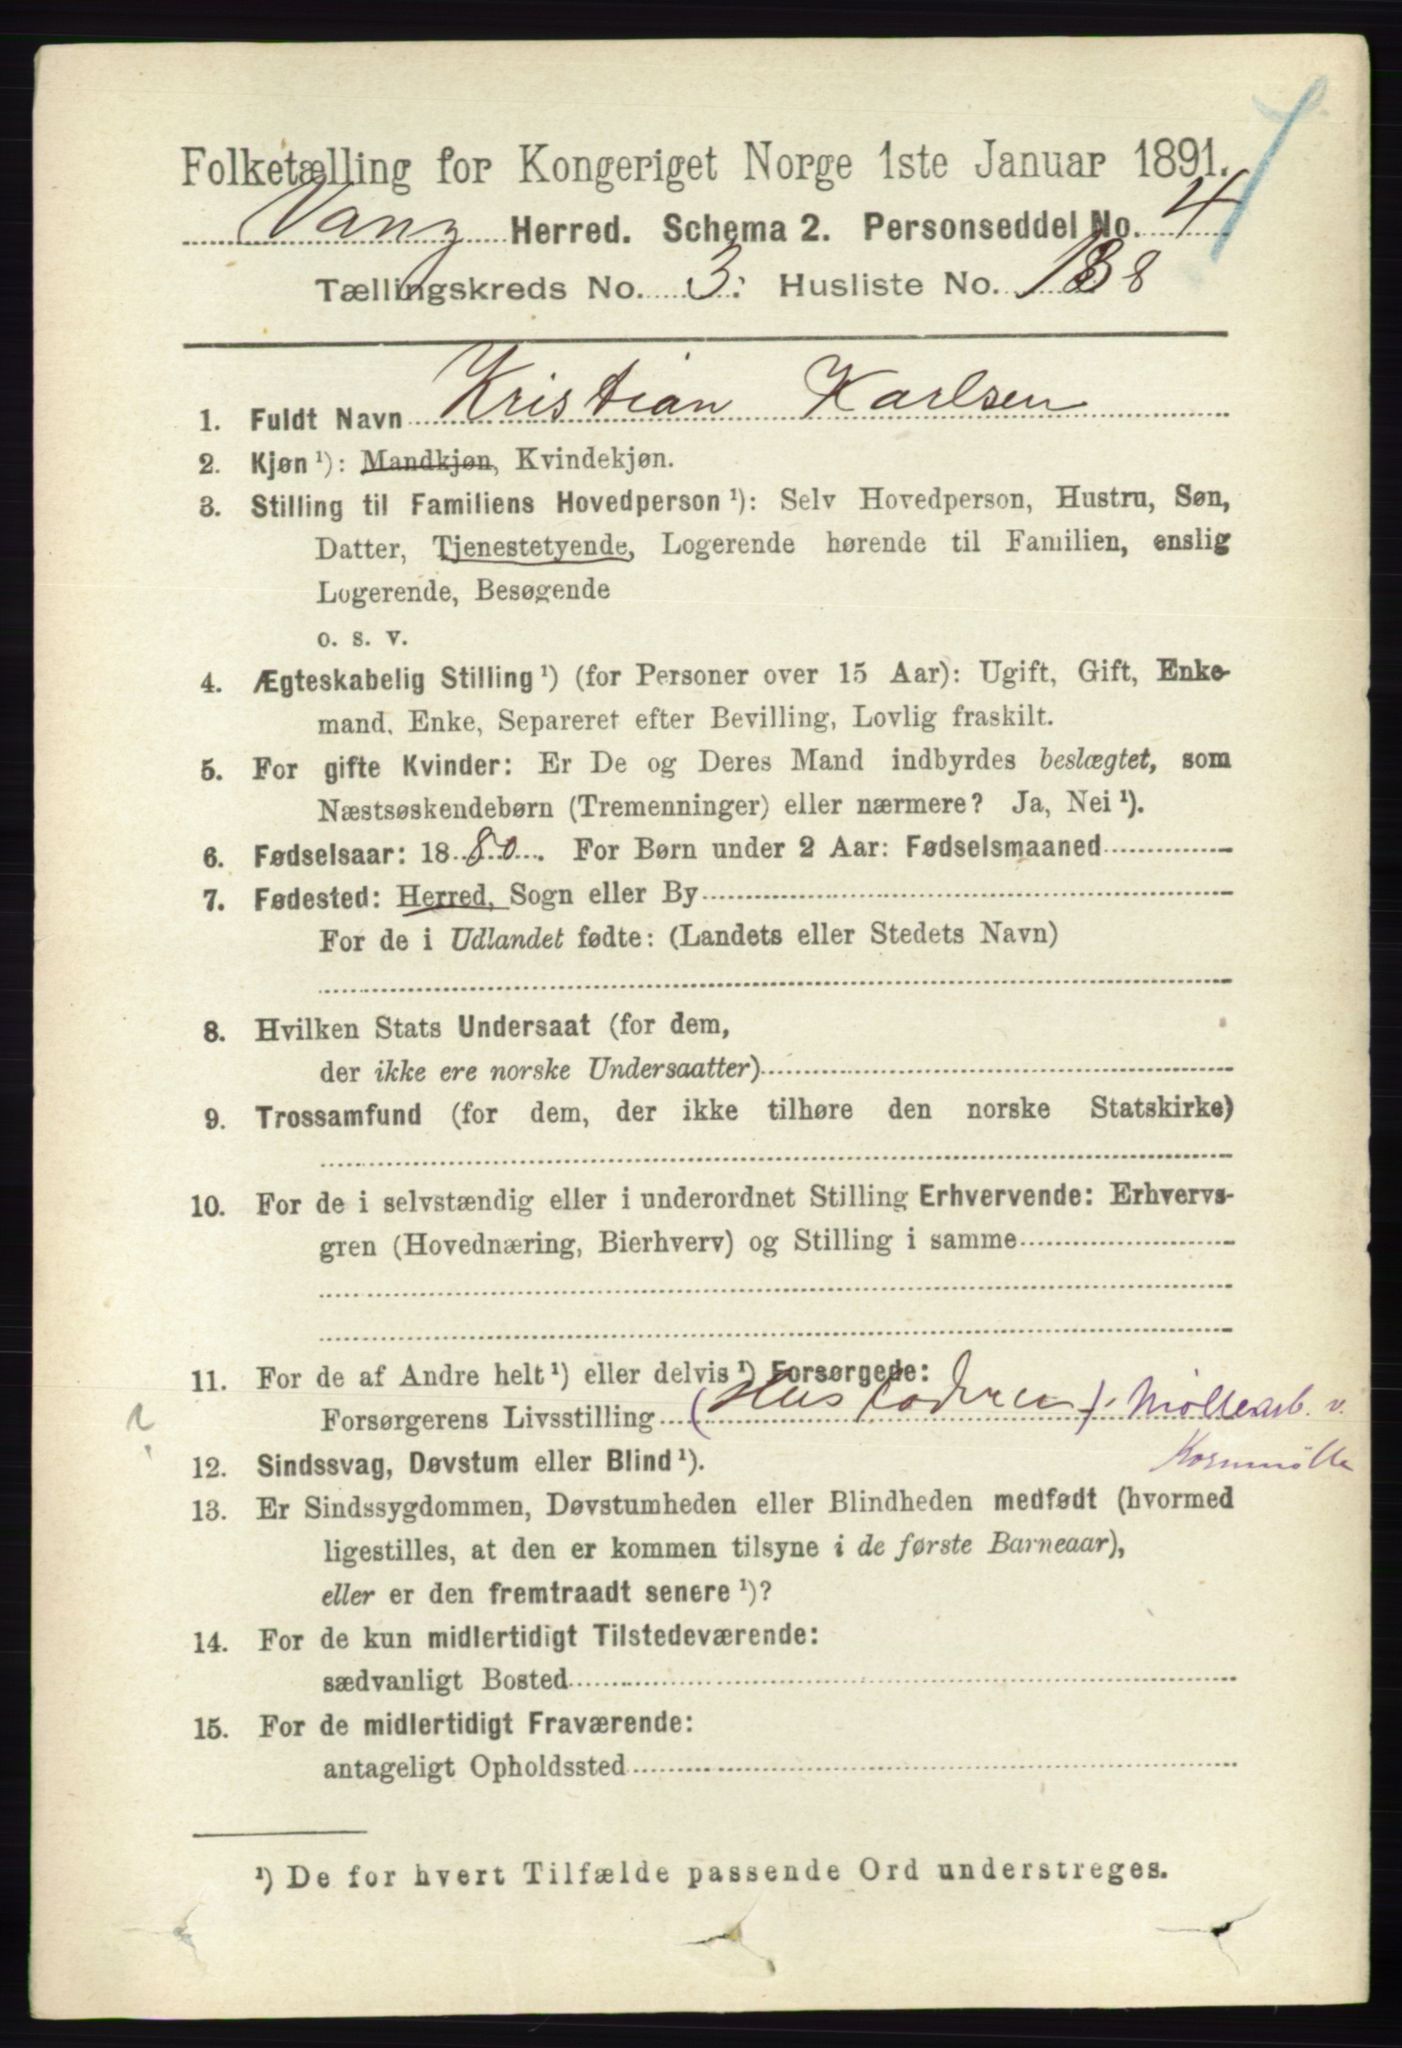 Folketælling for Kongeriget Norge 1ste Januar 1891.
Vang Herred. Schema 2. Personseddel No. 4
Tællingskreds No. 3. Husliste No. 138
1. Fuldt Navn Kristian Karlsen
2. Kjøn ¹): Mandkjøn, Kvindekjøn.
3. Stilling til Familiens Hovedperson ¹): Selv Hovedperson, Hustru, Søn,
Datter, Tjenestetyende, Logerende hørende til Familien, enslig
Logerende, Besøgende
o. s. v.
4. Ægteskabelig Stilling ¹) (for Personer over 15 Aar): Ugift, Gift, Enke-
mand, Enke, Separeret efter Bevilling, Lovlig fraskilt.
5. For gifte Kvinder: Er De og Deres Mand indbyrdes beslægtet, som
Næstsøskendebørn (Tremenninger) eller nærmere? Ja, Nei ¹).
6. Fødselsaar: 1880. For Børn under 2 Aar: Fødselsmaaned
7. Fødested: Herred, Sogn eller By
For de i Udlandet fødte: (Landets eller Stedets Navn)
8. Hvilken Stats Undersaat (for dem,
der ikke ere norske Undersaatter)
9. Trossamfund (for dem, der ikke tilhøre den norske Statskirke)
10. For de i selvstændig eller i underordnet Stilling Erhvervende: Erhvervs-
gren (Hovednæring, Bierhverv) og Stilling i samme
11. For de af Andre helt ¹) eller delvis ¹) Forsørgede:
Forsørgerens Livsstilling (Husfaderen). Møllearb. v.
Kornmølle
12. Sindssvag, Døvstum eller Blind ¹).
13. Er Sindssygdommen, Døvstumheden eller Blindheden medfødt (hvormed
ligestilles, at den er kommen tilsyne i de første Barneaar),
eller er den fremtraadt senere ¹)?
14. For de kun midlertidigt Tilstedeværende:
sædvanligt Bosted
15. For de midlertidigt Fraværende:
antageligt Opholdssted
¹) De for hvert Tilfælde passende Ord understreges.